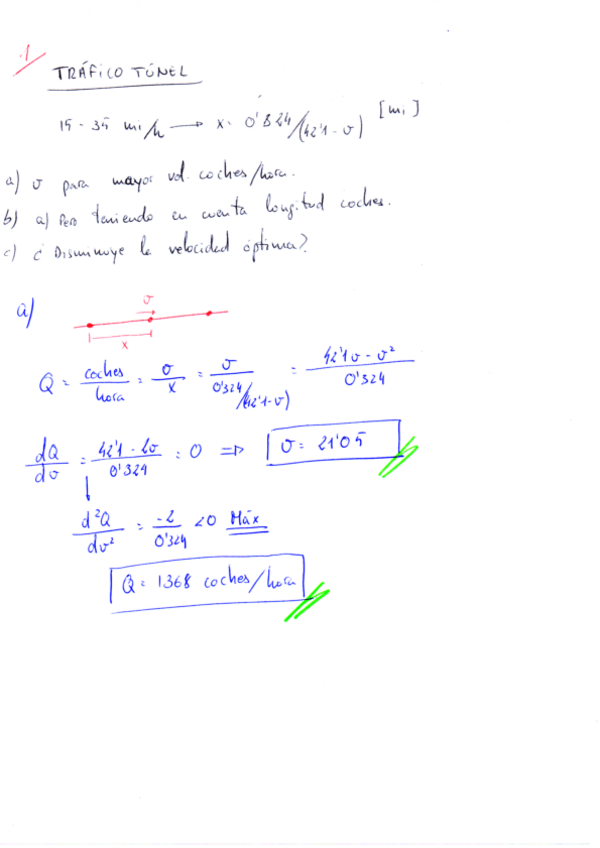 .1
TRÁFICO TÚNEL
15 - 35 mi/h → x = 0'324/(42'1 - v) [mi]
a) v para mayor vol. coches/hora.
b) a) Pero teniendo en cuenta longitud coches.
c) ¿Disminuye la velocidad óptima?
a)
v
x
Q = coches/hora = v/x = v/(0'324/(42'1-v)) = (42'1v - v²)/0'324
dQ/dv = (42'1 - 2v)/0'324 = 0 => v = 21'05
d²Q/dv² = -2/0'324 <0 Máx
Q = 1368 coches/hora